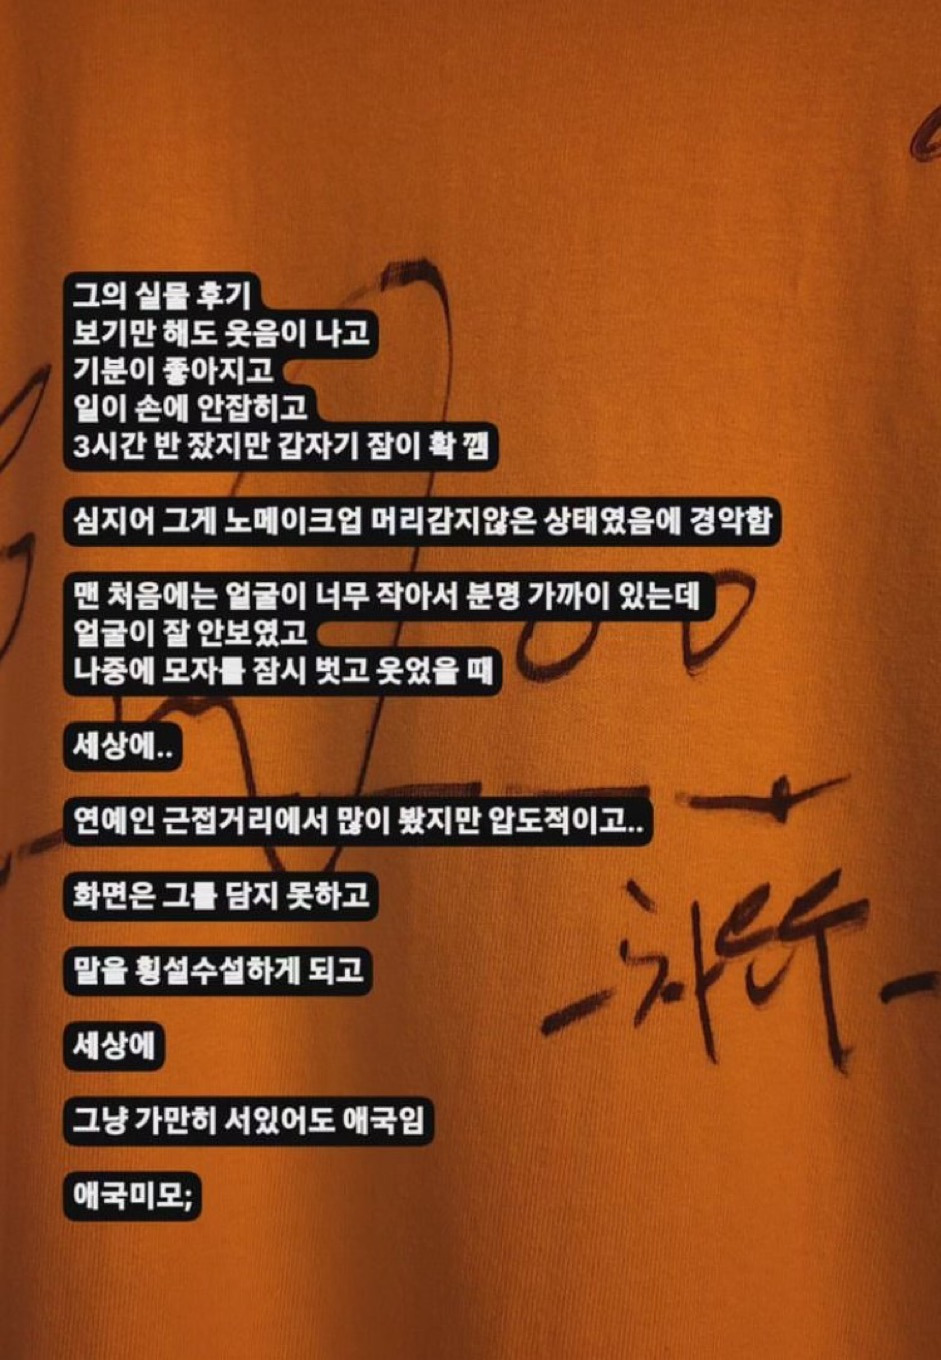 그의 실물 후기
보기만 해도 웃음이 나고
기분이 좋아지고
일이 손에 안잡히고
3시간 반 잤지만 갑자기 잠이 확 깸
심지어 그게 노메이크업 머리감지않은 상태였음에 경악함
맨 처음에는 얼굴이 너무 작아서 분명 가까이 있는데
얼굴이 잘 안보였고
나중에 모자를 잠시 벗고 웃었을 때
세상에..
연예인 근접거리에서 많이 봤지만 압도적이고..
화면은 그를 담지 못하고
말을 횡설수설하게 되고
세상에
그냥 가만히 서있어도 애국임
애국미모;